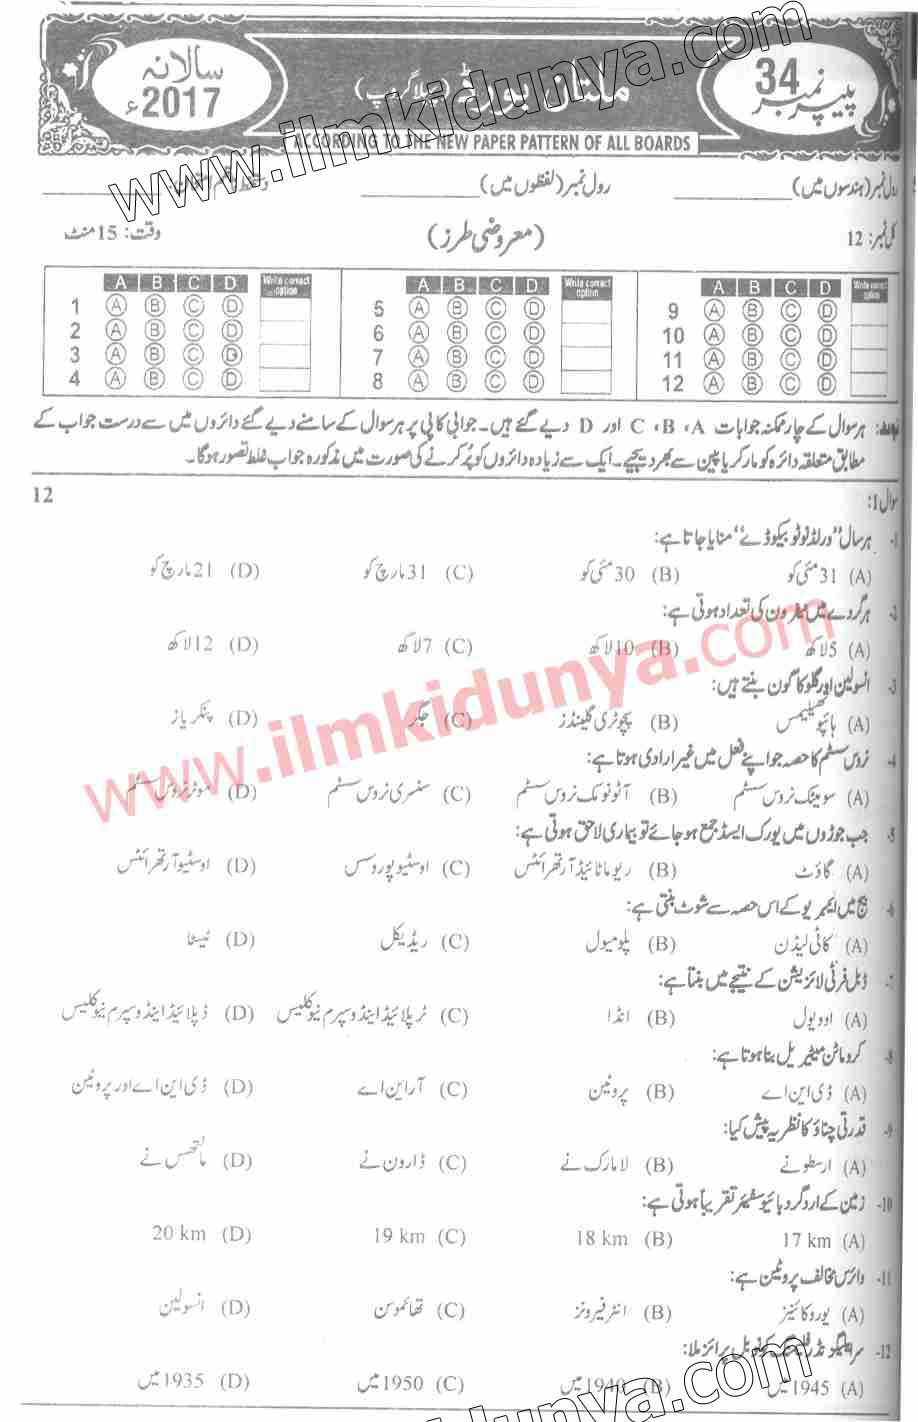 پیپر نمبر 34
ملتان بورڈ (پہلا گروپ)
سالانہ 2017ء
ACCORDING TO THE NEW PAPER PATTERN OF ALL BOARDS
www.ilmkidunya.com
رول نمبر (ہندسوں میں) ____________ رول نمبر (لفظوں میں) ____________
کل نمبر: 12 (معروضی طرز) وقت: 15 منٹ
A B C D Write correct option A B C D Write correct option A B C D Write correct option
1 A B C D 5 A B C D 9 A B C D
2 A B C D 6 A B C D 10 A B C D
3 A B C D 7 A B C D 11 A B C D
4 A B C D 8 A B C D 12 A B C D
نوٹ: ہر سوال کے چار ممکنہ جوابات A، B، C اور D دیے گئے ہیں۔ جوابی کاپی پر ہر سوال کے سامنے دیے گئے دائروں میں سے درست جواب کے
مطابق متعلقہ دائرہ کو مارکر یا پین سے بھر دیجیے۔ ایک سے زیادہ دائروں کو پُر کرنے کی صورت میں مذکورہ جواب غلط تصور ہوگا۔
سوال 1: 12
1- ہر سال ”ورلڈ نو ٹوبیکو ڈے“ منایا جاتا ہے:
(A) 31 مئی کو (B) 30 مئی کو (C) 31 مارچ کو (D) 21 مارچ کو
2- ہر گردے میں نیفرون کی تعداد ہوتی ہے:
(A) 5 لاکھ (B) 10 لاکھ (C) 7 لاکھ (D) 12 لاکھ
3- انسولین اور گلوکاگون بنتے ہیں:
(A) ہائپوتھیلیمس (B) پچوٹری گلینڈز (C) جگر (D) پنکریاز
4- نروس سسٹم کا حصہ جو اپنے فعل میں غیر ارادی ہوتا ہے:
(A) سومیٹک نروس سسٹم (B) آٹونومک نروس سسٹم (C) سنسری نروس سسٹم (D) موٹر نروس سسٹم
5- جب جوڑوں میں یورک ایسڈ جمع ہو جائے تو بیماری لاحق ہوتی ہے:
(A) گاؤٹ (B) ریوماٹائیڈ آرتھرائٹس (C) اوسٹیوپوروسس (D) اوسٹیوآرتھرائٹس
6- بیج میں ایمبریو کے اس حصہ سے شوٹ بنتی ہے:
(A) کاٹی لیڈن (B) پلومیول (C) ریڈیکل (D) ٹیسٹا
7- ڈبل فرٹی لائزیشن کے نتیجے میں بنتا ہے:
(A) اوویول (B) انڈا (C) ٹرپلائیڈ اینڈوسپرم نیوکلیس (D) ڈپلائیڈ اینڈوسپرم نیوکلیس
8- کروماٹن میٹیریل بنا ہوتا ہے:
(A) ڈی این اے (B) پروٹین (C) آر این اے (D) ڈی این اے اور پروٹین
9- قدرتی چناؤ کا نظریہ پیش کیا:
(A) ارسطو نے (B) لامارک نے (C) ڈارون نے (D) مالتھس نے
10- زمین کے اردگرد بائیوسفیئر تقریباً ہوتی ہے:
(A) 17 km (B) 18 km (C) 19 km (D) 20 km
11- وائرس مخالف پروٹین ہے:
(A) یوروکائنیز (B) انٹرفیرونز (C) تھائموسن (D) انسولین
12- سر ایلیگزینڈر فلیمنگ کو نوبل پرائز ملا:
(A) 1945 میں (B) 1940 میں (C) 1950 میں (D) 1935 میں
www.ilmkidunya.com